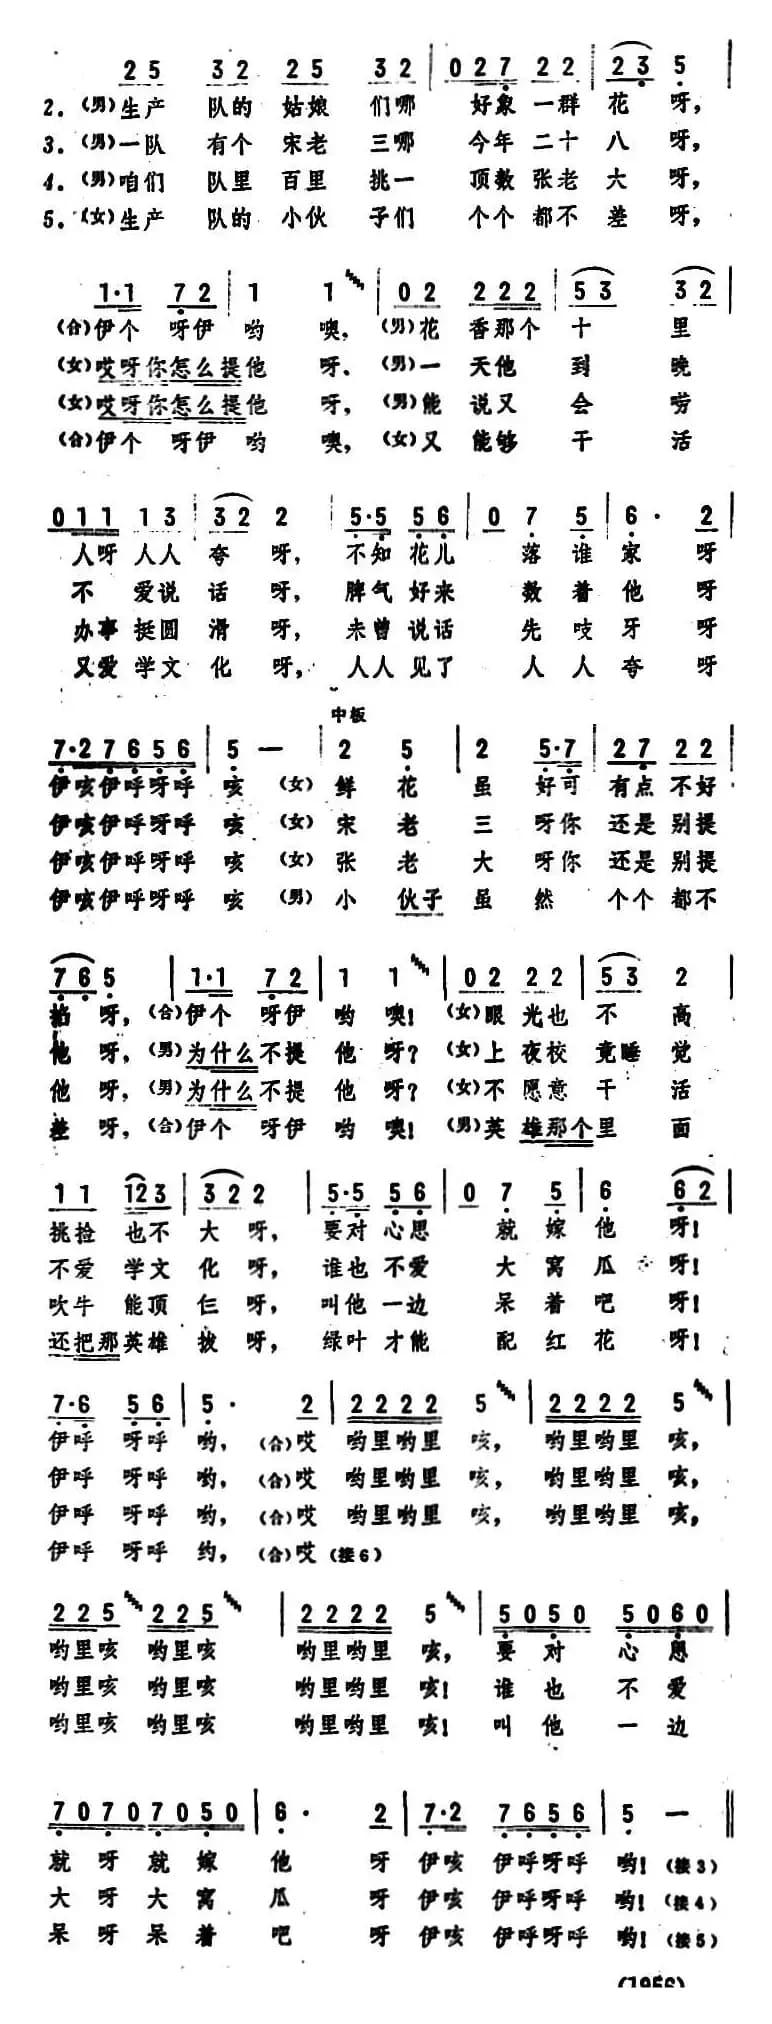 2 5 3 2 2 5 3 2 | 0 2 7 2 2 | 2 3 5 |
2.(男)生产 队的 姑娘 们哪 好象 一群 花 呀,
3.(男)一队 有个 宋老 三哪 今年 二十 八 呀,
4.(男)咱们 队里 百里 挑一 顶数 张老 大 呀,
5.(女)生产 队的 小伙 子们 个个 都不 差 呀,
1·1 7 2 | 1 1 | 0 2 2 2 2 | 5 3 3 2 |
(合)伊个 呀伊 哟 噢, (男)花 香那个 十 里
(女)哎呀你怎么提他 呀、 (男)一 天他 到 晚
(女)哎呀你怎么提他 呀, (男)能 说又 会 唠
(合)伊个 呀伊 哟 噢, (女)又 能够 干 活
0 1 1 1 3 | 3 2 2 | 5·5 5 6 | 0 7 5 | 6· 2 |
人呀 人人 夸 呀, 不知 花儿 落 谁 家 呀
不 爱说 话 呀, 脾气 好来 数 着 他 呀
办事 挺圆 滑 呀, 未曾 说话 先 吱 牙 呀
又爱 学文 化 呀, 人人 见了 人 人 夸 呀
中板
7·2 7 6 5 6 | 5 — | 2 5 | 2 5·7 | 2 7 2 2 |
伊咳伊呼呀呼 咳 (女)鲜 花 虽 好可 有点 不好
伊咳伊呼呀呼 咳 (女)宋 老 三 呀你 还是 别提
伊咳伊呼呀呼 咳 (女)张 老 大 呀你 还是 别提
伊咳伊呼呀呼 咳 (男)小 伙子 虽 然 个个 都不
7 6 5 | 1·1 7 2 | 1 1 | 0 2 2 2 | 5 3 2 |
掐 呀, (合)伊个 呀伊 哟 噢! (女)眼 光也 不 高
他 呀, (男)为什么不提 他 呀? (女)上 夜校 竟睡 觉
他 呀, (男)为什么不提 他 呀? (女)不 愿意 干 活
差 呀, (合)伊个 呀伊 哟 噢! (男)英 雄那个里 面
1 1 1 2 3 | 3 2 2 2 | 5·5 5 6 | 0 7 5 | 6 6 2 |
挑捡 也不 大 呀, 要对 心思 就 嫁 他 呀!
不爱 学文 化 呀, 谁也 不爱 大 窝 瓜 呀!
吹牛 能顶 仨 呀, 叫他 一边 呆 着 吧 呀!
还把那英雄 披 呀, 绿叶 才能 配 红 花 呀!
7·6 5 6 | 5· 2 | 2 2 2 2 5 | 2 2 2 2 5 |
伊呼 呀呼 哟, (合)哎 哟里哟里 咳, 哟里哟里 咳,
伊呼 呀呼 哟, (合)哎 哟里哟里 咳, 哟里哟里 咳,
伊呼 呀呼 哟, (合)哎 哟里哟里 咳, 哟里哟里 咳,
伊呼 呀呼 约, (合)哎 (接6)
2 2 5 2 2 5 | 2 2 2 2 5 | 5 0 5 0 5 0 6 0 |
哟里咳 哟里咳 哟里哟里 咳, 要 对 心 思
哟里咳 哟里咳 哟里哟里 咳! 谁 也 不 爱
哟里咳 哟里咳 哟里哟里 咳! 叫 他 一 边
7 0 7 0 7 0 5 0 | 6· 2 | 7·2 7 6 5 6 | 5 — ‖
就 呀 就 嫁 他 呀 伊咳 伊呼呀呼 哟! (接3)
大 呀 大 窝 瓜 呀 伊咳 伊呼呀呼 哟! (接4)
呆 呀 呆 着 吧 呀 伊咳 伊呼呀呼 哟! (接5)
(1956)